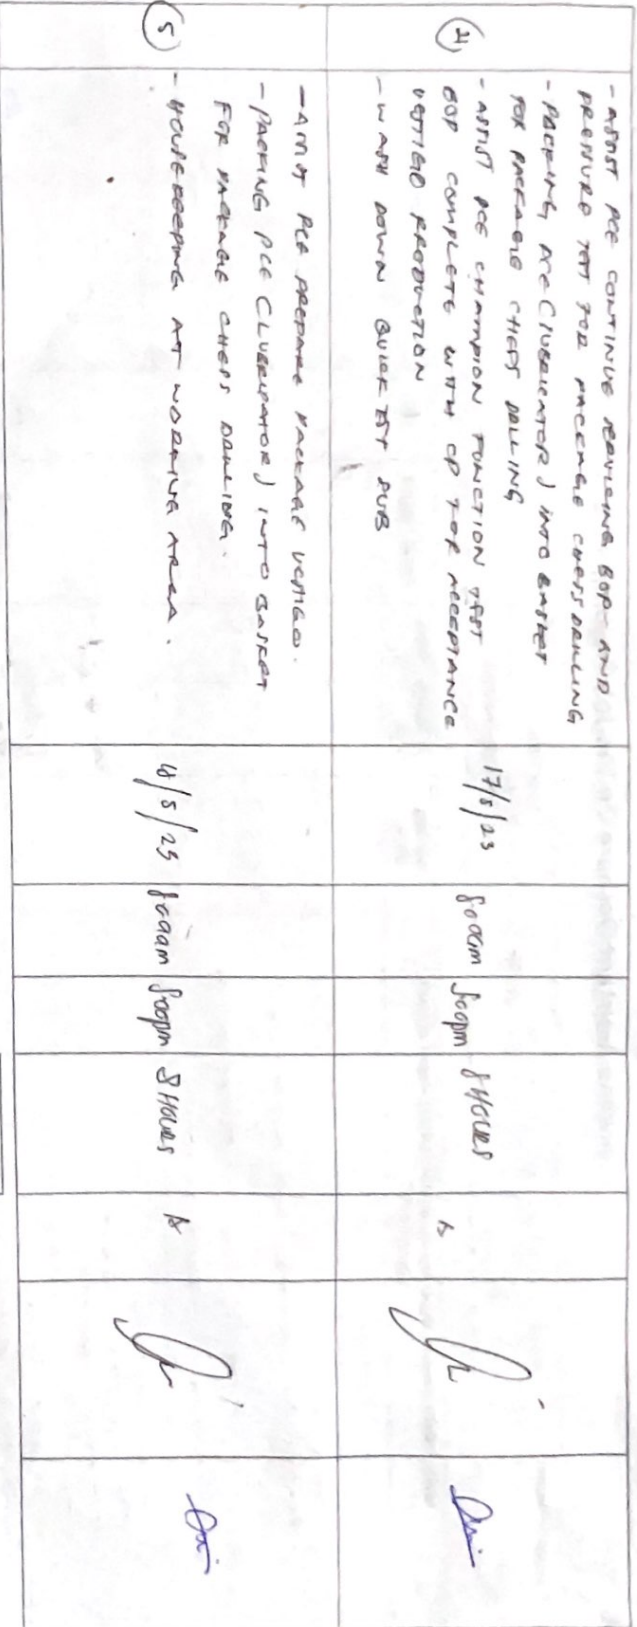 4)
- ASSIST PCE CONTINUE SERVICING BOP AND
PRESSURE TEST FOR PACKAGE CHESS DRILLING
- PACKING PCE (LUBRICATOR) INTO BASKET
FOR PACKAGE CHESS DRILLING
- ASSIST PCE CHAMPION FUNCTION TEST
BOP COMPLETE WITH CP FOR ACCEPTANCE
VERTIGO PRODUCTION
- WASH DOWN QUICK TEST SUB
17/5/23
800am
500pm
8 HOURS
A
5)
- ASSIST PCE PREPARE PACKAGE VERTIGO.
- PACKING PCE (LUBRICATOR) INTO BASKET
FOR PACKAGE CHESS DRILLING.
- HOUSEKEEPING AT WORKING AREA.
18/5/23
800am
500pm
8 HOURS
A